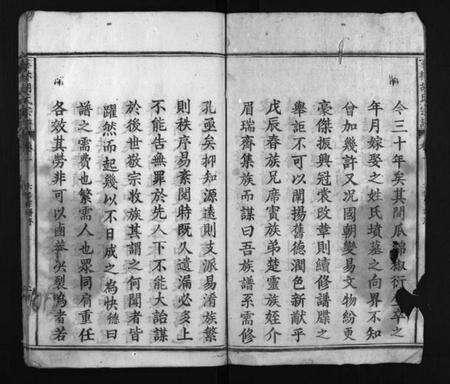 今三十年矣其間瓜綿椒衍生卒之
年月嫁娶之姓氏墳墓之向界不知
曾加幾許又况國朝變易文物紛更
豪傑振興冠裳改章則續修譜牒之
舉詎不可以闡揚舊德潤色新猷乎
戊辰春族兄席賓族弟楚靈族姪介
眉瑞齊集族而謀曰吾族譜系需修
孔亟矣抑知源遠則支派易淆族繁
則秩序易紊閱時既久遺漏必多上
不能告無罪於先人下不能大詒謀
於後世敬宗收族其謂之何聞者皆
躍然而起幾以不日成之為快德曰
譜之需費也繁需人也眾同肩重任
各效其勞非可以鹵莽決裂為者若